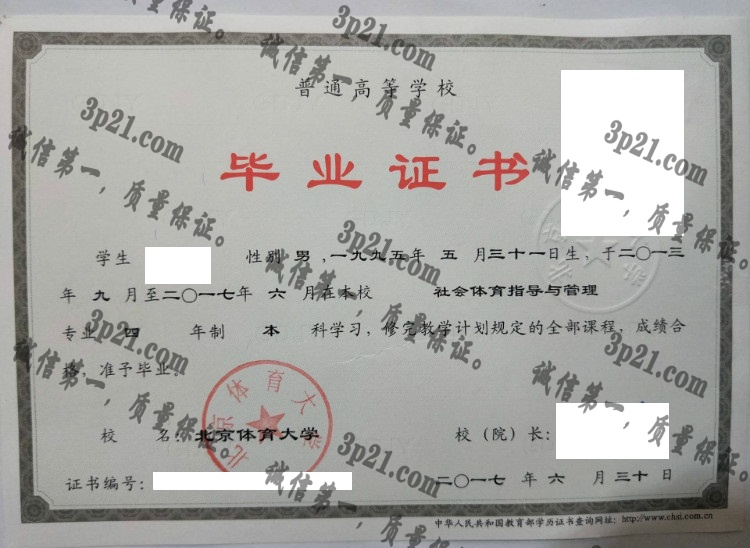 普通高等学校
毕业证书
学生 性别 男 ,一九九五年 五 月三十一日生, 于二〇一三
年 九 月至二〇一七年 六 月在本校 社会体育指导与管理
专业 四 年制 本 科学习, 修完教学计划规定的全部课程, 成绩合
格, 准予毕业。
北京体育大学
校 名: 北京体育大学 校(院)长:
证书编号: 二〇一七 年 六 月 三十 日
中华人民共和国教育部学历证书查询网址: http://www.chsi.com.cn
3p21.com
诚信第一,质量保证。
3p21.com
诚信第一,质量保证。
3p21.com
诚信第一,质量保证。
3p21.com
诚信第一,质量保证。
3p21.com
诚信第一,质量保证。
3p21.com
诚信第一,质量保证。
3p21.com
诚信第一,质量保证。
3p21.com
诚信第一,质量保证。